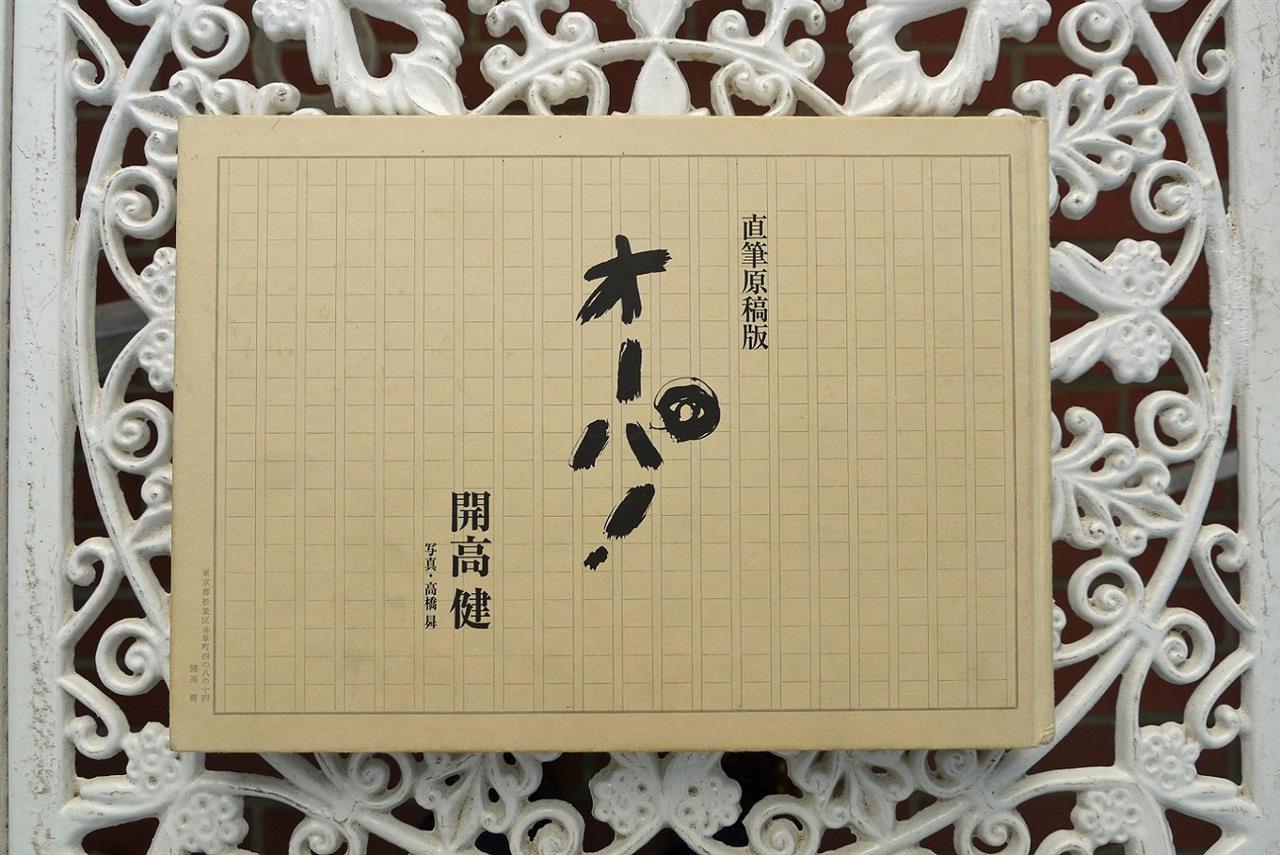 直筆原稿版
オーパ!
開高 健
写真・高橋 曻
東京都杉並区井草町四の八の十四
開高 健